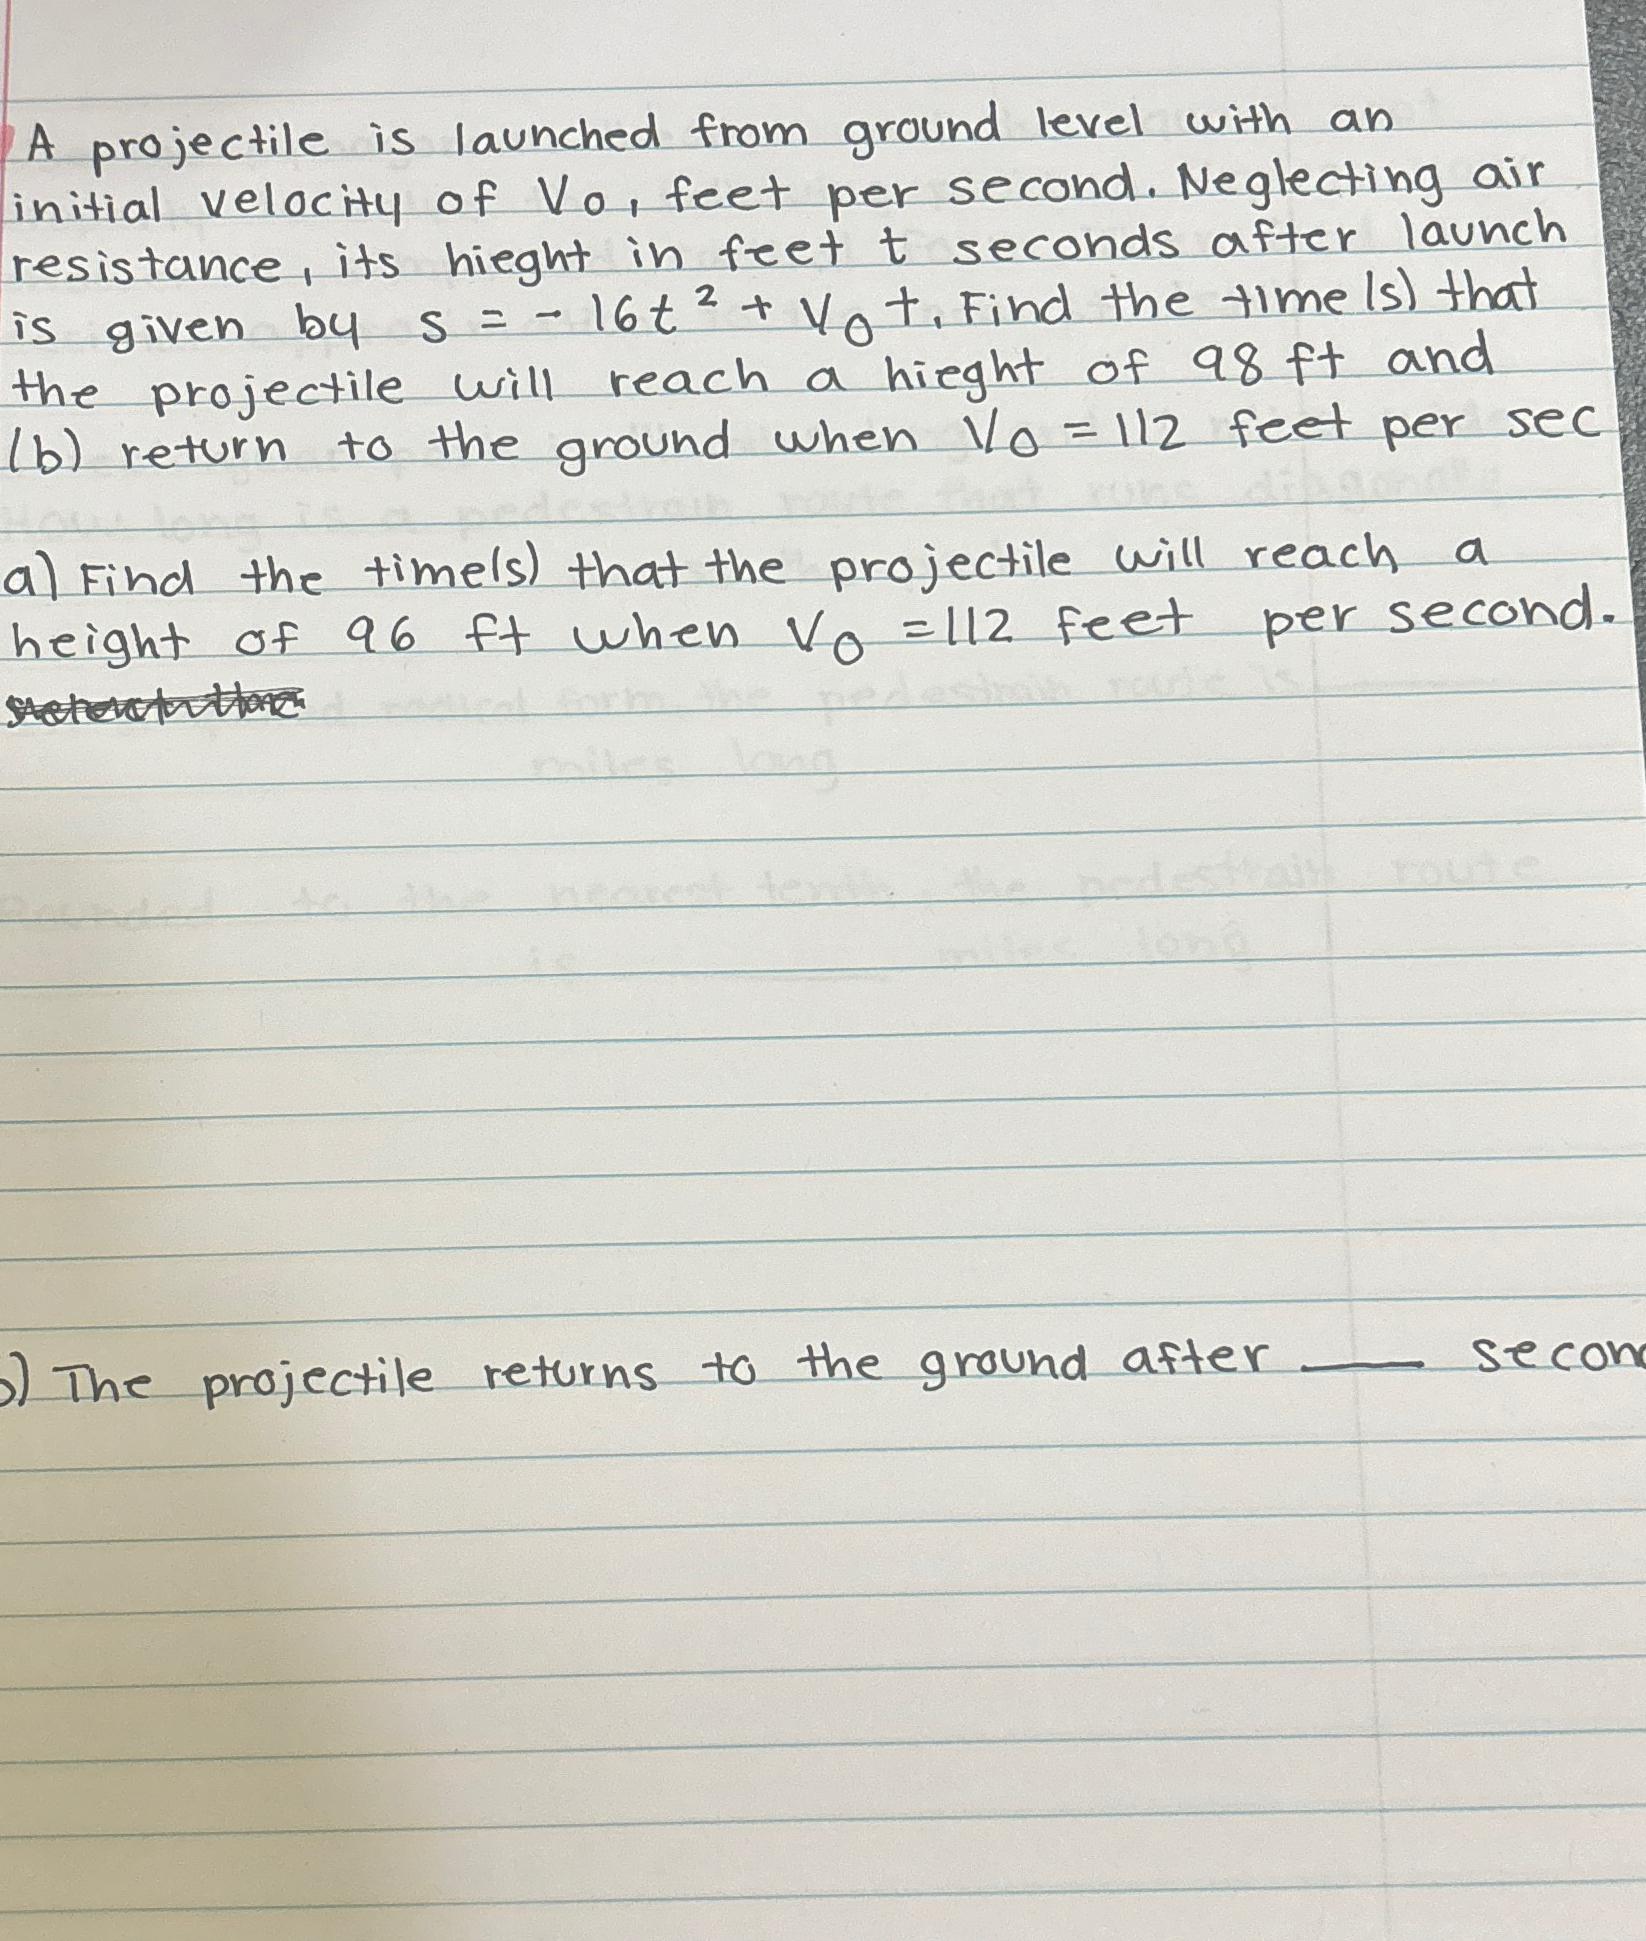 A projectile is launched from ground level with an
initial velocity of Vo, feet per second. Neglecting air
resistance, its hieght in feet t seconds after launch
is given by s = - 16t² + V₀t. Find the time(s) that
the projectile will reach a hieght of 98 ft and
(b) return to the ground when V₀ = 112 feet per sec
a) Find the time(s) that the projectile will reach a
height of 96 ft when V₀ = 112 feet per second.
) The projectile returns to the ground after ___ secon